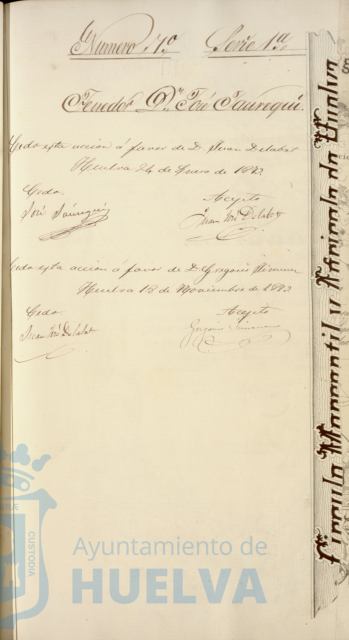 Numero 71º Serie 1ª
Tenedor Dn José Jauregui
Cedo esta acción á favor de D. Juan Delabat
Huelva 24 de Enero de 1893
Cedo Acepto
José Jáuregui Juan José Delabat
Cedo esta acción á favor de D. Gregorio Jimenez
Huelva 18 de Noviembre de 1893
Cedo Acepto
Juan José Delabat Gregorio Jimenez
Círculo Mercantil y Agrícola de Huelva
CUSTODIA
Ayuntamiento de
HUELVA